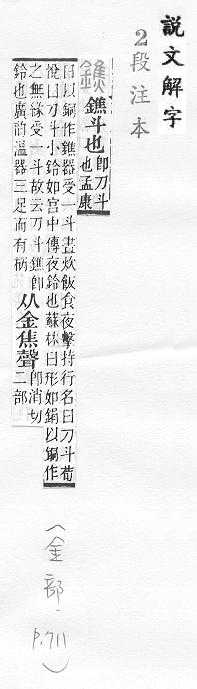 説文解字
2段注本
鐎 鐎斗也 即刀斗
也孟康
曰以銅作鐎器受一斗晝炊飯食夜擊持行名曰刀斗荀
悅曰刀斗小鈴如宮中傳夜鈴也蘇林曰形如鋗以銅作
之無緣受一斗故云刀斗鐎即
鈴也廣韵溫器三足而有柄
从金焦聲
即消切
二部
(金部.p.711)